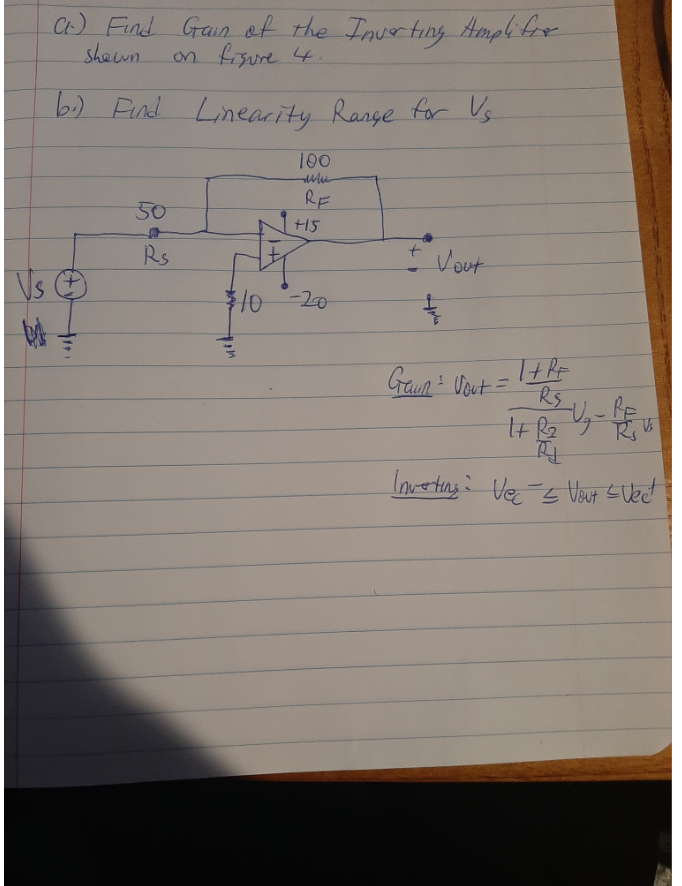 a.) Find Gain of the Inverting Amplifier
shown on figure 4.
b.) Find Linearity Range for Vs
100
RF
50
Rs
+15
-
+
+
-
Vout
Vs
+
-
10
-20
Gain: Vout = 1+RF
Rs
1+ R2
R1
Vg - RF
Rs
Vs
Inverting: Vcc⁻ ≤ Vout ≤ Vcc⁺